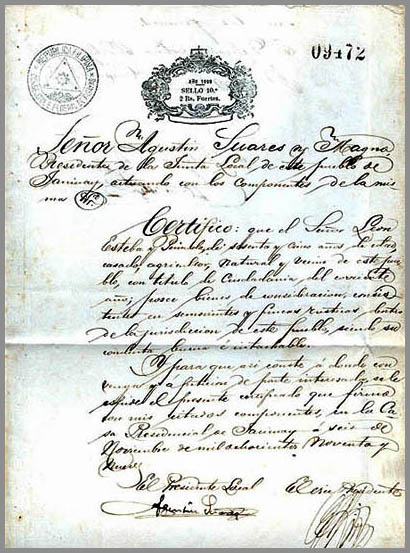 REPUBLICA FILIPINA
09472
AÑO 1899
SELLO 10.º
2 Rs. Fuertes.
Señor Dn. Agustin Suares y Magna
Presidente de la Junta Local de este pueblo de
Janiuay, actuando con los componentes de la mis
ma
Certifico: que el Señor Leon
Esteba y de sesenta y cinco años de edad
casado, agricultor, natural y vecino de este pue
blo, con titulo de Ciudadania del corriente
año; posee bienes de consideracion, consis
tentes en y fincas rusticas, dentro
de la jurisdiccion de este pueblo, siendo su
conducta buena é intachable.
Y para que asi conste á donde con
venga y á peticion de parte interesada se le
espide el presente certificado que firma
con mis citados componentes, en la Ca
sa Presidencial de Janiuay á seis de
Noviembre de mil ochocientos Noventa y
nueve.
El Presidente Local
Agustin Suares